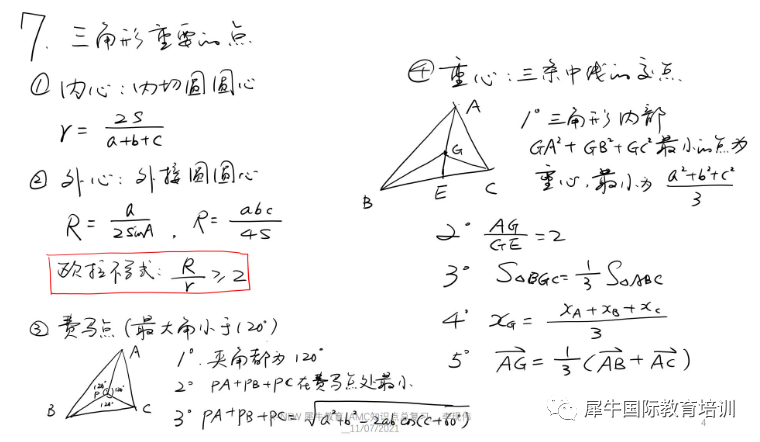 7. 三角形重要的点
① 内心：内切圆圆心
r = 2S / (a+b+c)
② 外心：外接圆圆心
R = a / 2sinA , R = abc / 4S
欧拉不等式: R/r ≥ 2
③ 费马点 (最大角小于120°)
A
120° P 120°
120°
B C
1° 夹角都为120°
2° PA+PB+PC在费马点处最小
3° PA+PB+PC = √(a²+b²-2ab cos(C+60°))
④ 重心：三条中线的交点
A
G
B E C
1° 三角形内部
GA²+GB²+GC²最小的点为
重心,最小为 (a²+b²+c²)/3
2° AG/GE = 2
3° S△BGC = 1/3 S△ABC
4° x_G = (x_A+x_B+x_C)/3
5° AG→ = 1/3 (AB→ + AC→)
犀牛教育 AMC知识点总复习
11/07/2021
犀牛国际教育培训
4